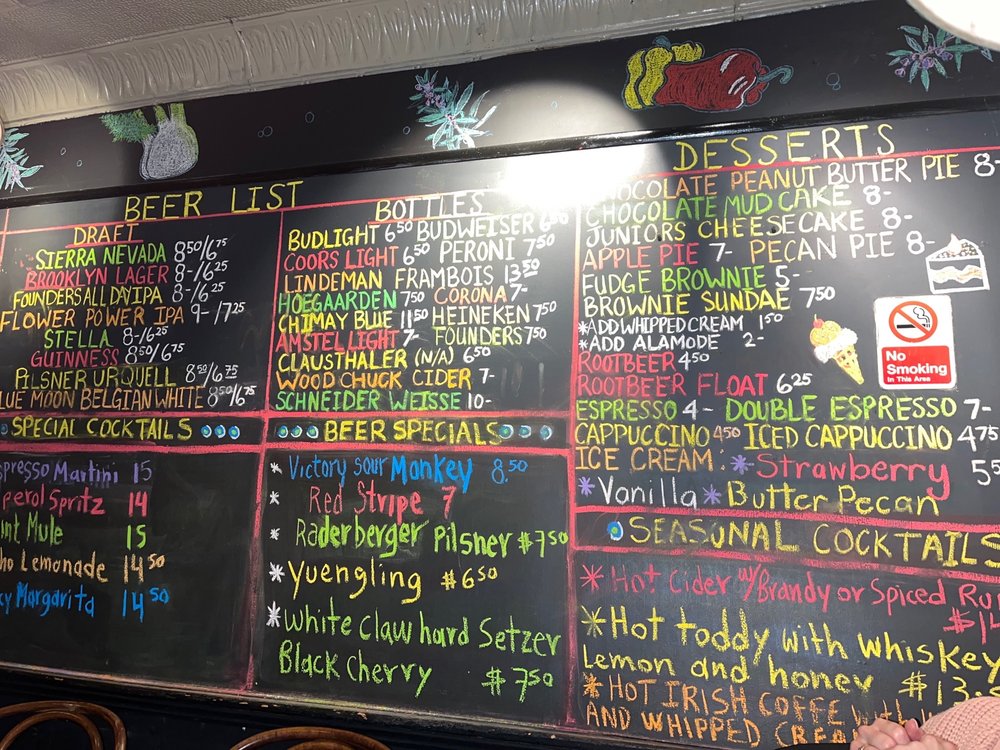 BEER LIST
DRAFT
SIERRA NEVADA 8.50/6.75
BROOKLYN LAGER 8-/6.25
FOUNDERS ALL DAY IPA 8-/6.25
FLOWER POWER IPA 9-/7.25
STELLA 8-/6.25
GUINNESS 8.50/6.75
PILSNER URQUELL 8.50/6.75
LUE MOON BELGIAN WHITE 8.50/6.75
SPECIAL COCKTAILS
spresso Martini 15
perol Spritz 14
int Mule 15
ho Lemonade 14.50
cy Margarita 14.50
BOTTLES
BUDLIGHT 6.50 BUDWEISER
COORS LIGHT 6.50 PERONI 7.50
LINDEMAN FRAMBOIS 13.50
HOEGAARDEN 7.50 CORONA 7-
CHIMAY BLUE 11.50 HEINEKEN 7.50
AMSTEL LIGHT 7- FOUNDERS 7.50
CLAUSTHALER (N/A) 6.50
WOOD CHUCK CIDER 7-
SCHNEIDER WEISSE 10-
BEER SPECIALS
* Victory sour Monkey 8.50
* Red Stripe 7
* Raderberger Pilsner $7.50
* Yuengling $6.50
* White Claw hard Setzer
Black Cherry $7.50
DESSERTS
CHOCOLATE PEANUT BUTTER PIE 8-
CHOCOLATE MUD CAKE 8-
JUNIORS CHEESECAKE 8-
APPLE PIE 7- PECAN PIE 8-
FUDGE BROWNIE 5-
BROWNIE SUNDAE 7.50
*ADD WHIPPED CREAM 1.50
*ADD ALAMODE 2-
ROOTBEER 4.50
ROOTBEER FLOAT 6.25
ESPRESSO 4- DOUBLE ESPRESSO 7-
CAPPUCCINO 4.50 ICED CAPPUCCINO 4.75
ICE CREAM: * Strawberry
* Vanilla * Butter Pecan
No
Smoking
In This Area
SEASONAL COCKTAILS
* Hot Cider w/Brandy or Spiced Ru
* Hot toddy with whiskey
Lemon and honey $13.
* HOT IRISH COFFE with
AND WHIPPED CREA